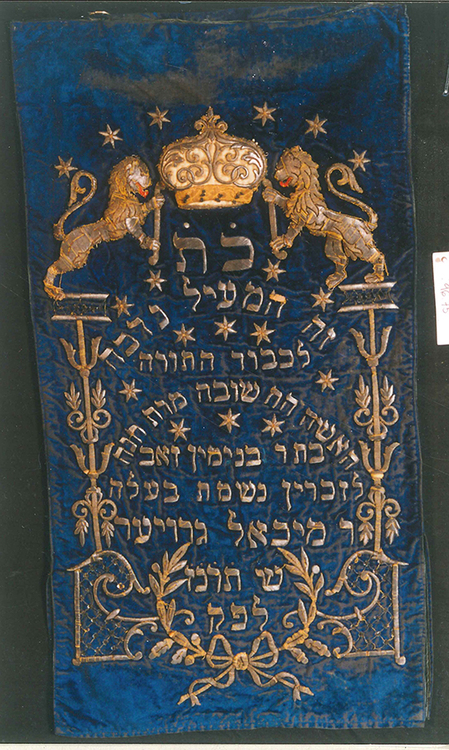 כׄתׄ
זה המעיל נדבה
לכבוד התורה
האשה החשובה מרת חנה
בת ר בנימין זאב
לזכרון נשמת בעלה
ר מיכאל גרוייער
ש תרנז
לפק